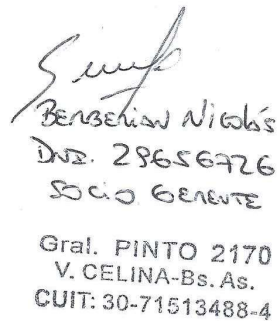 BERBERIAN Nicolás
DNI. 29656726
SOCIO GERENTE
Gral. PINTO 2170
V. CELINA-Bs. As.
CUIT: 30-71513488-4